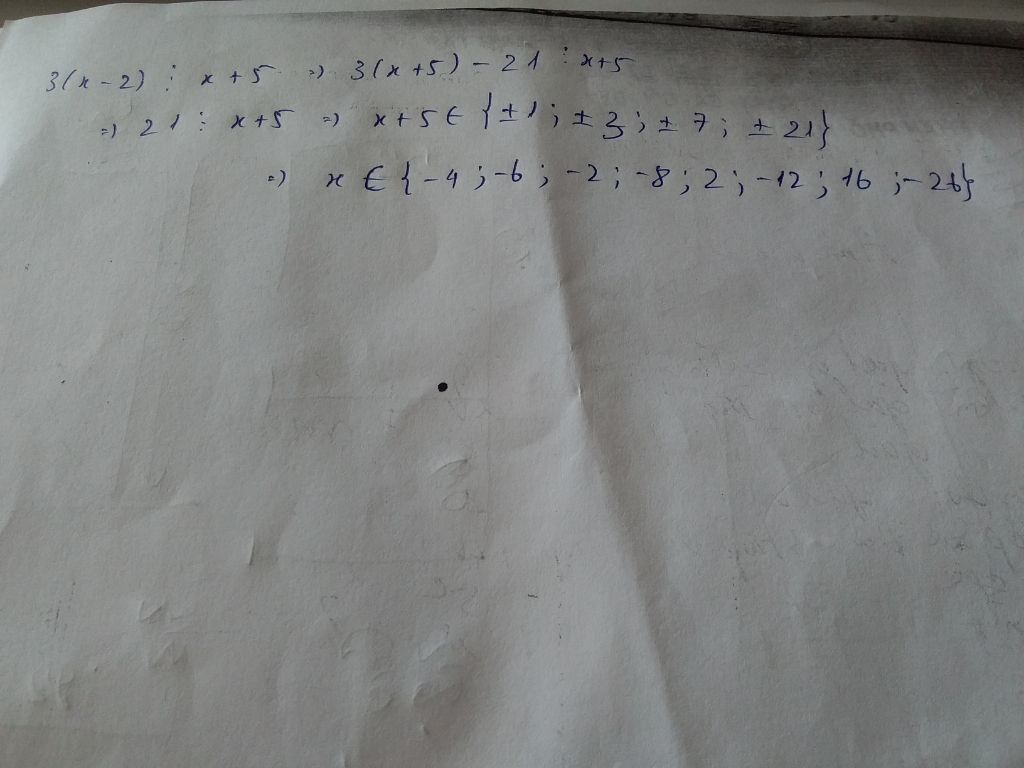 3(x-2) ⋮ x+5 => 3(x+5)-21 ⋮ x+5
=> 21 ⋮ x+5 => x+5 ∈ {±1; ±3; ±7; ±21}
=> x ∈ {-4; -6; -2; -8; 2; -12; 16; -26}